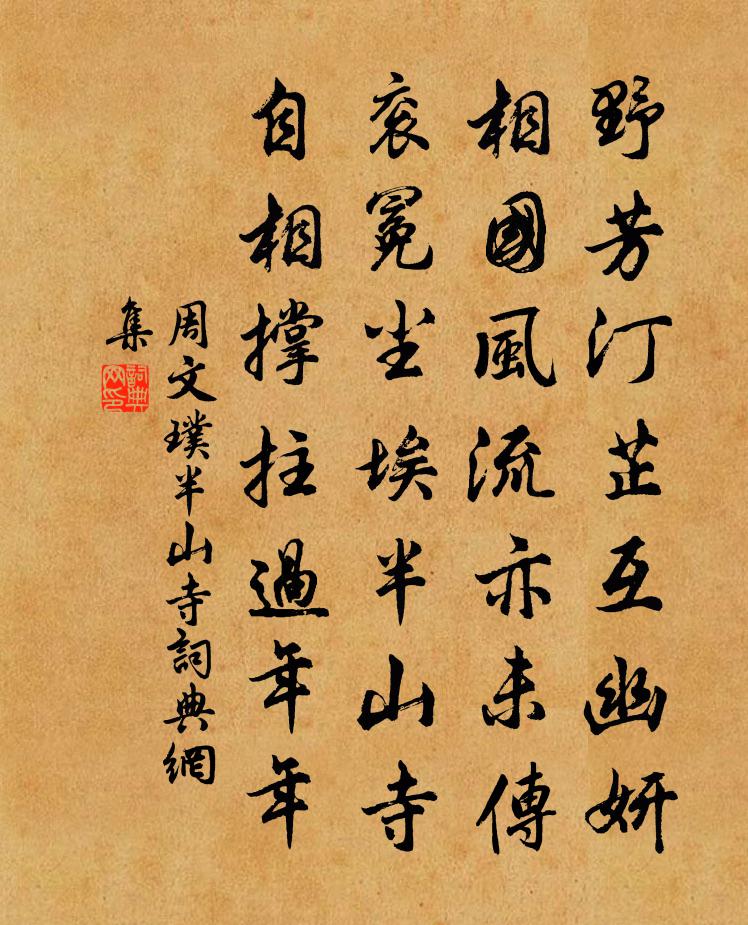 野芳汀芷互幽妍
相國風流亦未傳
衮冕尘埃半山寺
自相撑拄過年年
周文璞半山寺詞典網
集
詞典网印